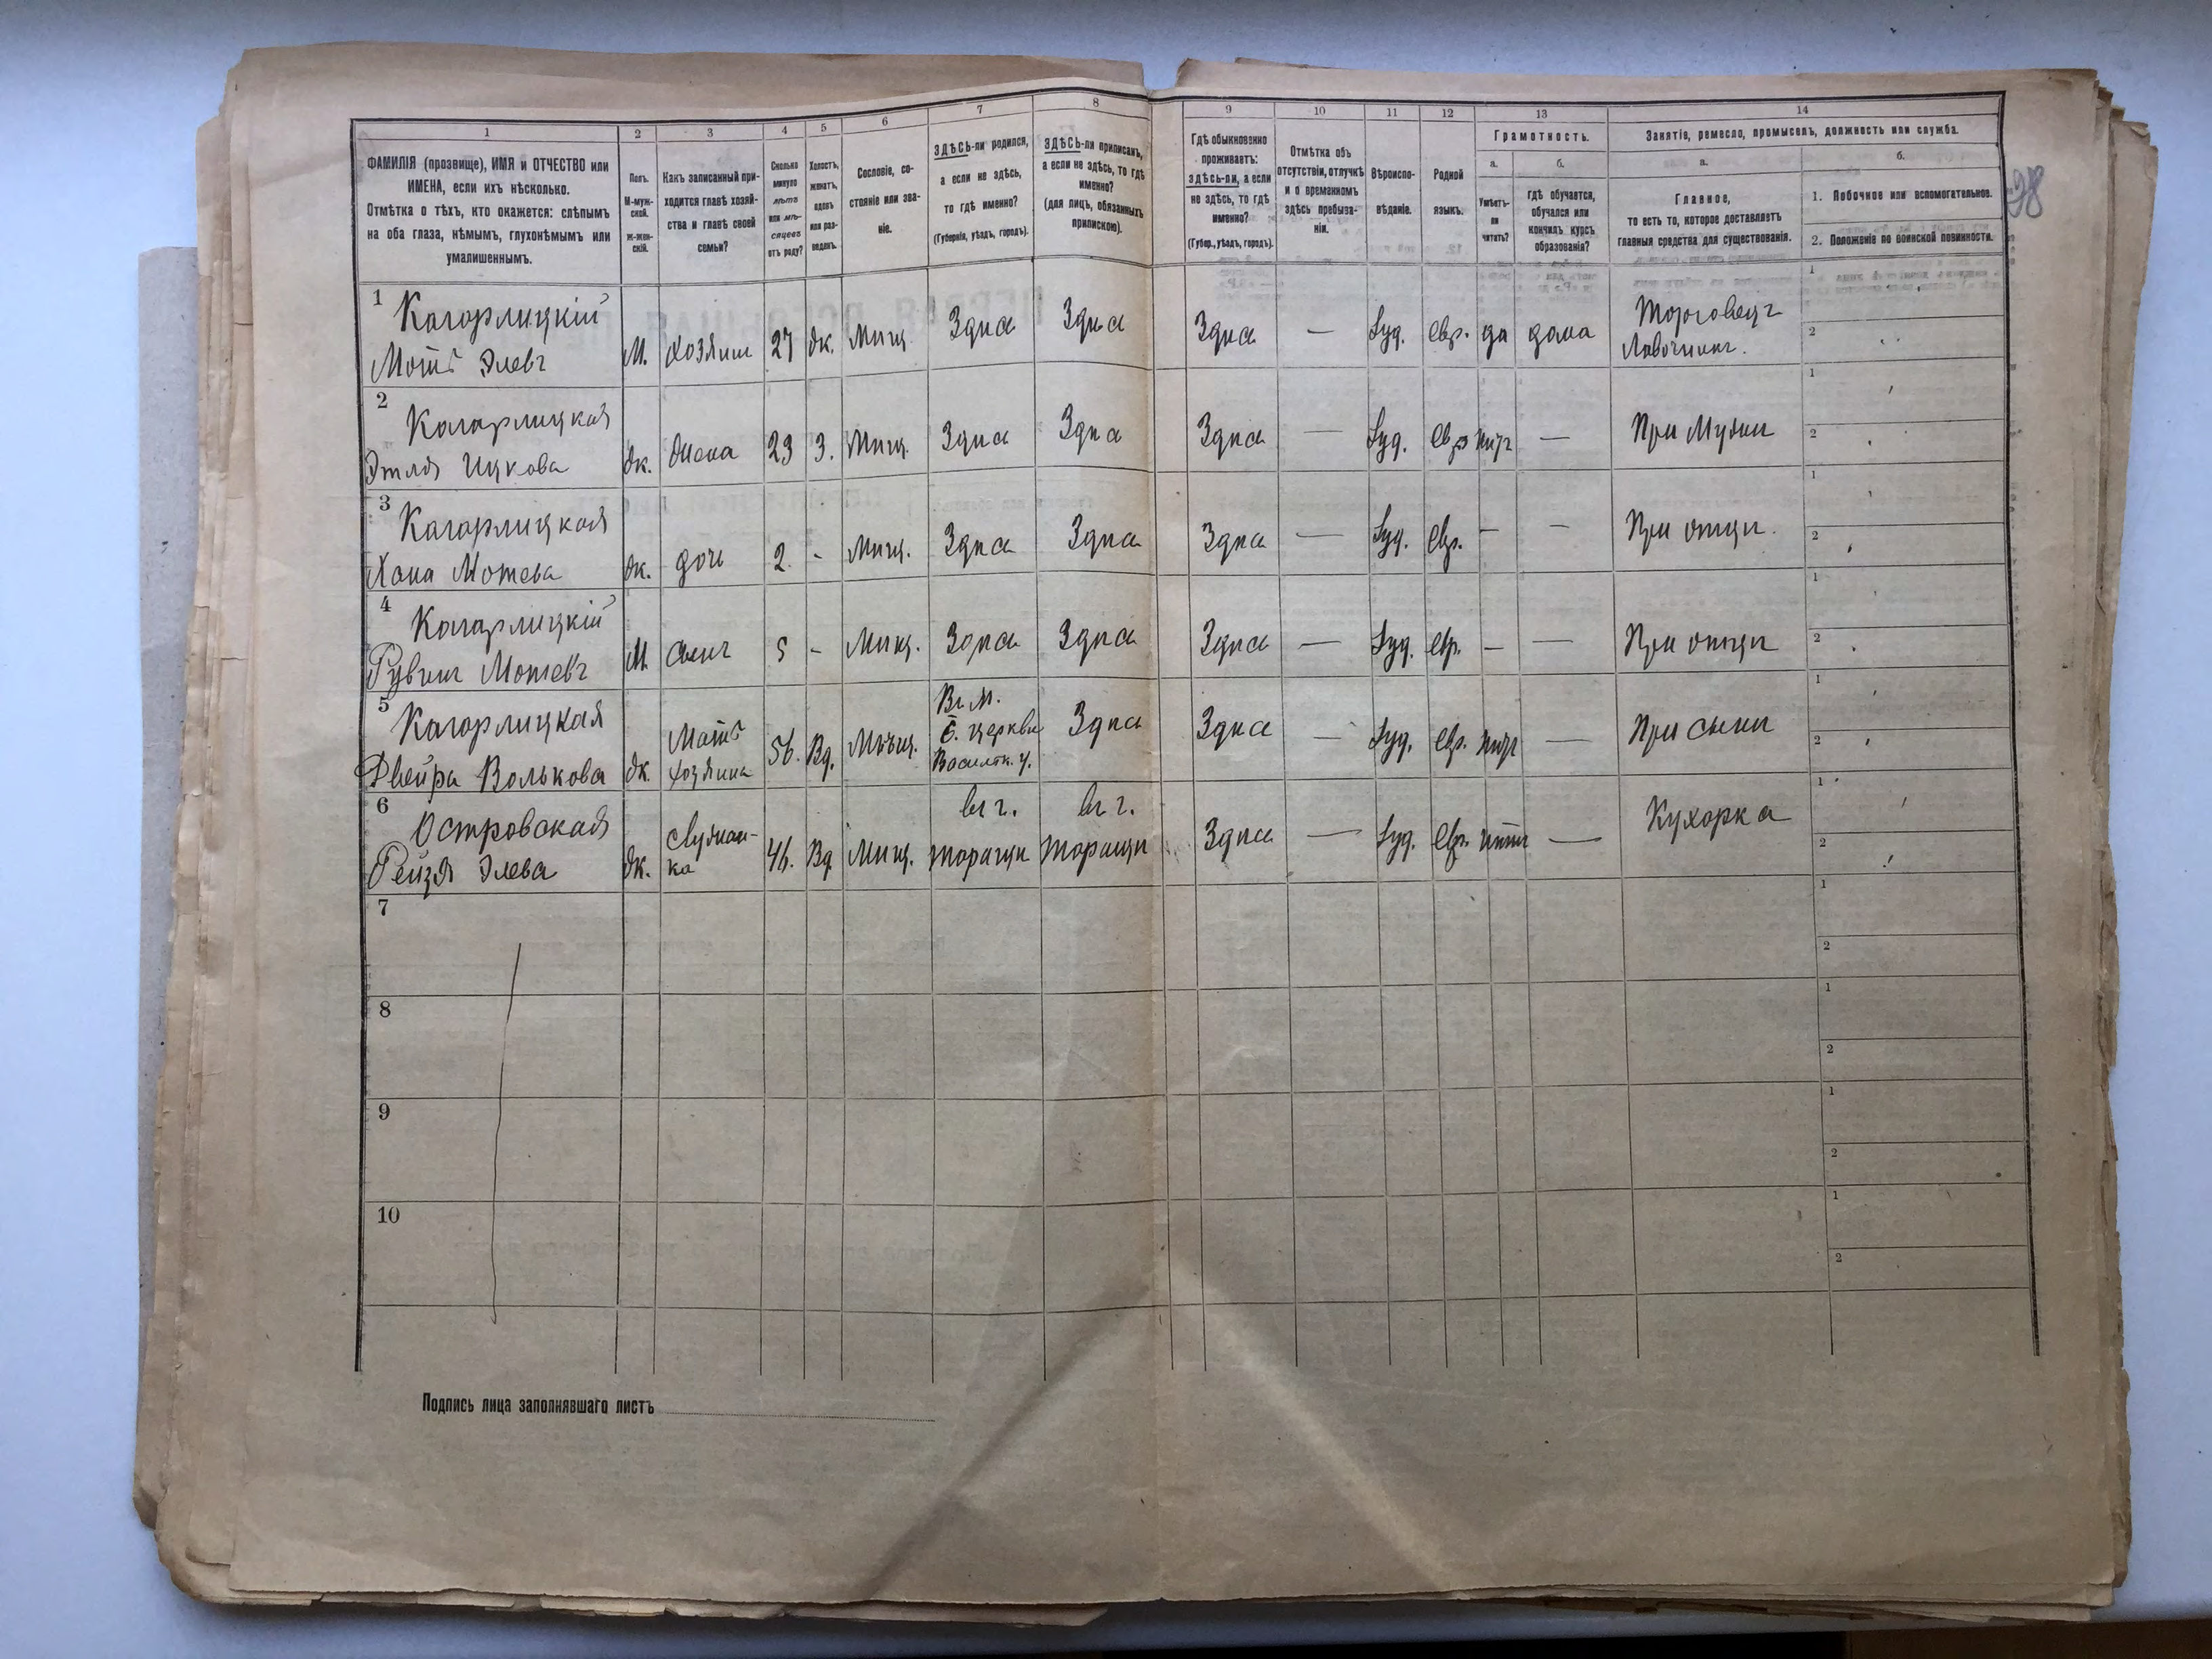 1 2 3 4 5 6 7 8 9 10 11 12 13 14
ФАМИЛІЯ (прозвище), ИМЯ и ОТЧЕСТВО или
ИМЕНА, если ихъ нѣсколько.
Отмѣтка о тѣхъ, кто окажется: слѣпымъ
на оба глаза, нѣмымъ, глухонѣмымъ или
умалишеннымъ.
Полъ.
М-муж-
ской.
ж-жен-
скій.
Какъ записанный при-
ходится главѣ хозяй-
ства и главѣ своей
семьи?
Сколько
минуло
лѣтъ
или мѣ-
сяцевъ
отъ роду?
Холостъ,
женатъ,
вдовъ
или раз-
веденъ.
Сословіе, со-
стояніе или зва-
ніе.
ЗДѢСЬ-ли родился,
а если не здѣсь,
то гдѣ именно?
(Губернія, уѣздъ, городъ).
ЗДѢСЬ-ли приписанъ,
а если не здѣсь, то гдѣ
именно?
(для лицъ, обязанныхъ
припискою).
Гдѣ обыкновенно
проживаетъ:
здѣсь-ли, а если
не здѣсь, то гдѣ
именно?
(Губер., уѣздъ, городъ).
Отмѣтка объ
отсутствіи, отлучкѣ
и о временномъ
здѣсь пребыва-
ніи.
Вѣроиспо-
вѣданіе.
Родной
языкъ.
Грамотность.
а.
Умѣетъ-
ли
читать?
б.
гдѣ обучается,
обучался или
кончилъ курсъ
образованія?
Занятіе, ремесло, промыселъ, должность или служба.
а.
Главное,
то есть то, которое доставляетъ
главныя средства для существованія.
б.
1. Побочное или вспомогательное.
2. Положеніе по воинской повинности.
98
1 Кагарлицкій
Мотѣ Элевъ М. хозяин 27 ж. Мищ. Здпа Здпа Здпа — Іуд. евр. да дома Торговецъ
Лавочникъ.
1
2
2 Кагарлицкая
Этля Ицкова ж. жена 23 З. Мищ. Здпа Здпа Здпа — Іуд. евр нитъ — При Мужи
1
2
3 Кагарлицкая
Хана Мотева ж. дочь 2. - Мищ. Здпа Здпа Здпа — Іуд. евр. - - При отци.
1
2
4 Кагарлицкій
Рувин Мотевъ М. сынъ 5 - Мищ. Здпа Здпа Здпа — Іуд. евр. - — При отци
1
2
5 Кагарлицкая
Двейра Волькова ж. Мать
хозяина 56. Вд. Мѣщ. Въ М.
Б. Церкви
Васильк. у. Здпа Здпа — Іуд. евр. нитъ — При сыни
1
2
6 Островская
Рейзя Элева ж. служан-
ка 46. Вд Мищ. въ г.
Таращи въ г.
Таращи Здпа — Іуд. евр. нитъ — Кухарка
1
2
7
1
2
8
1
2
9
1
2
10
1
2
Подпись лица заполнявшаго листъ